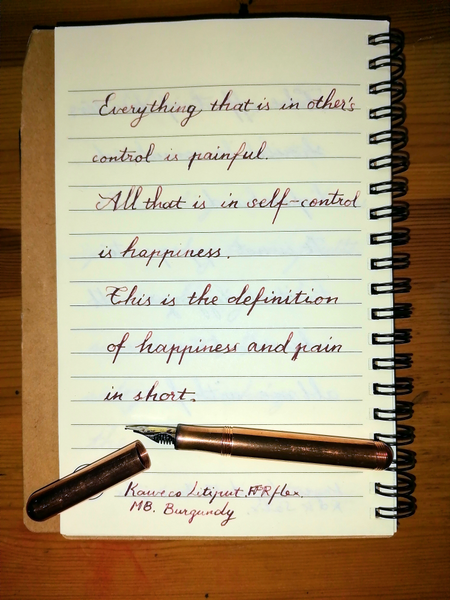 Everything that is in other's
control is painful.
All that is in self-control
is happiness.
This is the definition
of happiness and pain
in short.
Kaweco Liliput. FPR flex.
MB. Burgundy